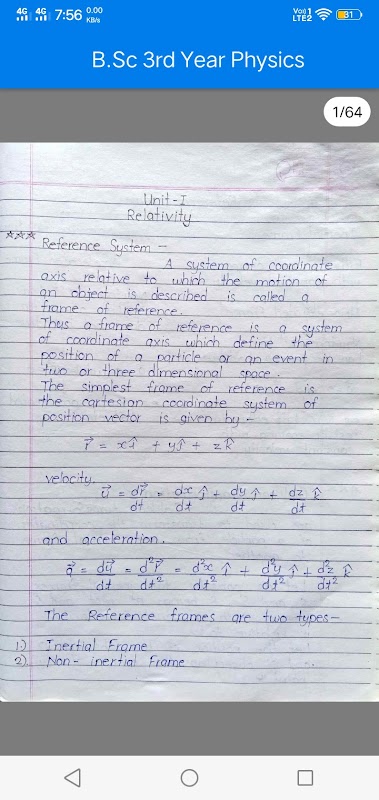 4G 4G 7:56 0.00 KB/s Vo)) 1 LTE2 31
B.Sc 3rd Year Physics
1/64
Unit - I
Relativity
*** Reference System -
A system of coordinate
axis relative to which the motion of
an object is described is called a
frame of reference.
Thus a frame of reference is a system
of coordinate axis which define the
position of a particle or an event in
two or three dimensional space.
The simplest frame of reference is
the cartesian coordinate system of
position vector is given by -
r⃗ = xî + yĵ + zk̂
velocity,
u⃗ = dr⃗/dt = dx/dt ĵ + dy/dt ĵ + dz/dt k̂
and acceleration.
a⃗ = du⃗/dt = d²r⃗/dt² = d²x/dt² î + d²y/dt² ĵ + d²z/dt² k̂
The Reference frames are two types-
1) Inertial Frame
2) Non- inertial Frame